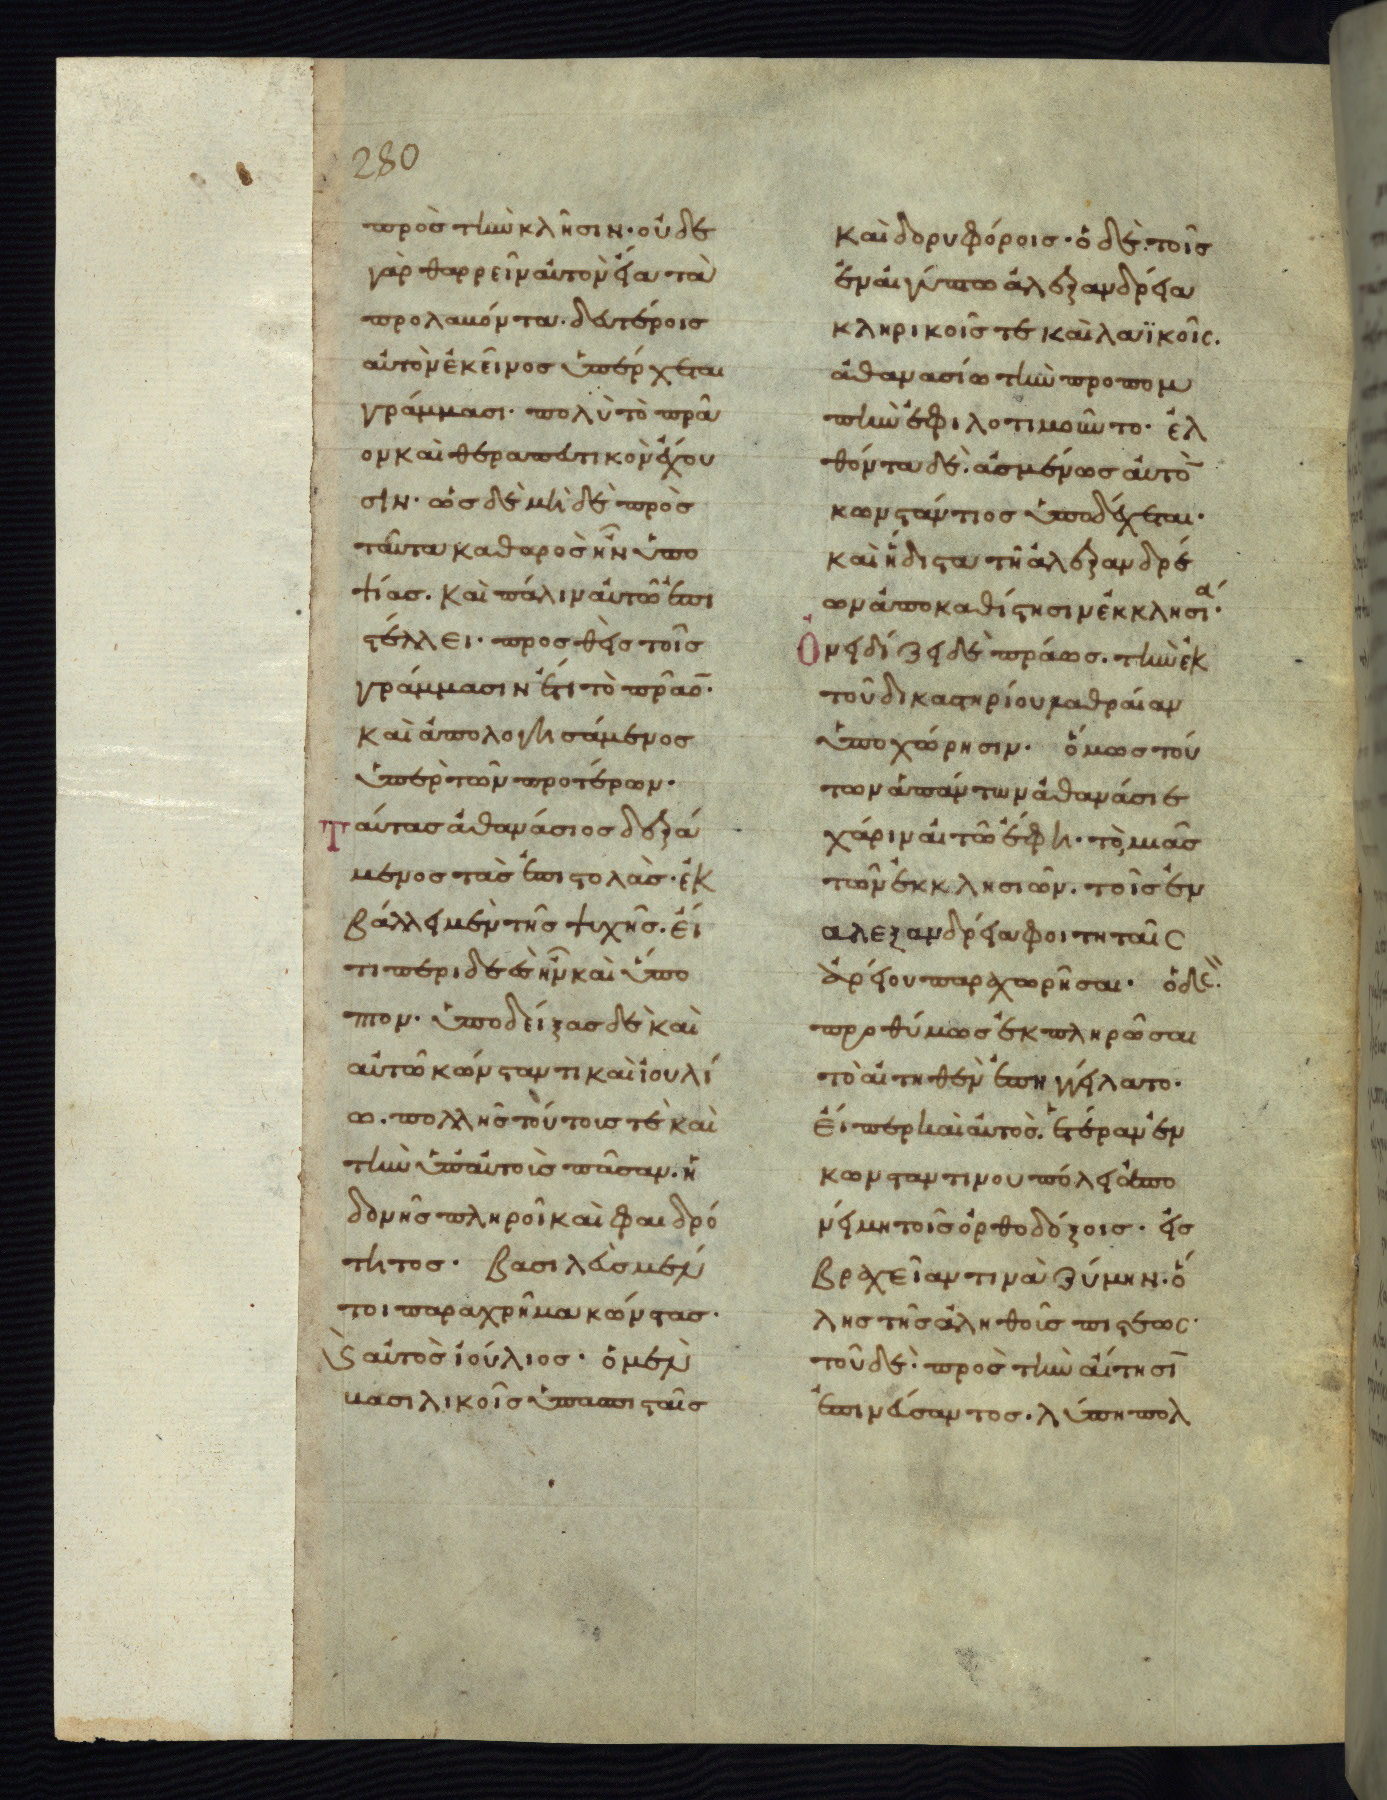 280
πρὸς τὴν κλῆσιν· οὐδὲ
γὰρ θαρρεῖν αὐτὸν εἴα τὰ
προλαβόντα. δευτέροις
αὐτὸν ἐκεῖνος ὑπέρχεται
γράμμασι· πολὺ τὸ πρᾶ
ον καὶ θεραπευτικὸν ἔχου
σιν· ὡς δὲ μὴ δὲ πρὸς
ταῦτα καθαρὸς ἦν ὑπο
ψίας. καὶ πάλιν αὐτῶ ἐπι
στέλλει· προσθεὶς τοῖς
γράμμασιν ἔτι τὸ πρᾶο̅·
καὶ ἀπολογησάμενος
ὑπὲρ τῶν προτέρων·
Ταύτας ἀθανάσιος δεξά
μενος τὰς ἐπιστολὰς· ἐκ
βάλλει μὲν τῆς ψυχῆς. εἴ
τι περιδεὲς ἦν καὶ ὕπο
πτον· ὑποδείξας δὲ καὶ
αὐτῶ κώνσταντι καὶ ἰουλί
ω. πολλῆς τούτοις τὲ καὶ
τὴν ὑπ' αὐτοῖς πᾶσαν. ἡ
δονῆς πληροῖ καὶ φαιδρό
τητος· βασιλεὺς μέν
τοι παραχρῆμα κώνστας·
ϗ αὐτὸς ἰούλιος· ὁ μὲν
βασιλικοῖς ὑπασπισταῖς
καὶ δορυφόροις· ὁ δὲ. τοῖς
ἐν αἰγύπτω ἀλεξανδρεία
κληρικοῖς τὲ καὶ λαϊκοῖς.
ἀθανασίω τὴν προπομ
πὴν ἐφιλοτιμοῦντο· ἐλ
θόντα δὲ. ἀσμένως αὐτὸ̅
κωνστάντιος ὑποδέχεται·
καὶ ἥδιστα τῆ ἀλεξανδρέ
ων ἀποκαθίστησιν ἐκκλησία·
Ὀνειδίζει δὲ πράως. τὴν ἐκ
τοῦ δικαστηρίου λαθραίαν
ὑποχώρησιν· ὅμως τού
των ἁπάντων ἀθανάσιε
χάριν αἰτῶ ἔφη· τὸ, μιᾶς
τῶν ἐκκλησιῶν. τοῖς ἐν
αλεξανδρεία φοιτηταῖς
ἀρείου παραχωρῆσαι· ὁ δὲ.
προθύμως ἐκπληρῶσαι
τὸ αἰτηθὲν ἐπηγγείλατο·
εἴπερ καὶ αὐτὸς. ἑτέραν ἐν
κωνσταντινουπόλει ἀπο
νείμη τοῖς ὀρθοδόξοις· εἰς
βραχεῖαν τινὰ ζύμην· ὅ
λης τῆς ἀληθοῦς πίστεως·
τοῦ δὲ. πρὸς τὴν αἴτησι̅
ἐπινεύσαντος. λύπη πολ